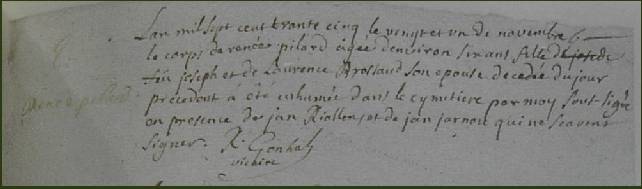 Lan mil sept cent trante cinq le vengt et un de novembre
le corps de renée pilard agée denviron six ans fille
feu joseph et de Laurence Brossaud son epouse decedée du jour
precedent a été inhumée dans le cymetiere par moy sous-signé
en presence de jan Riallen, et de jan jarnou qui ne scavent
signer.
R. Gouhal
vicaire
renée pillard